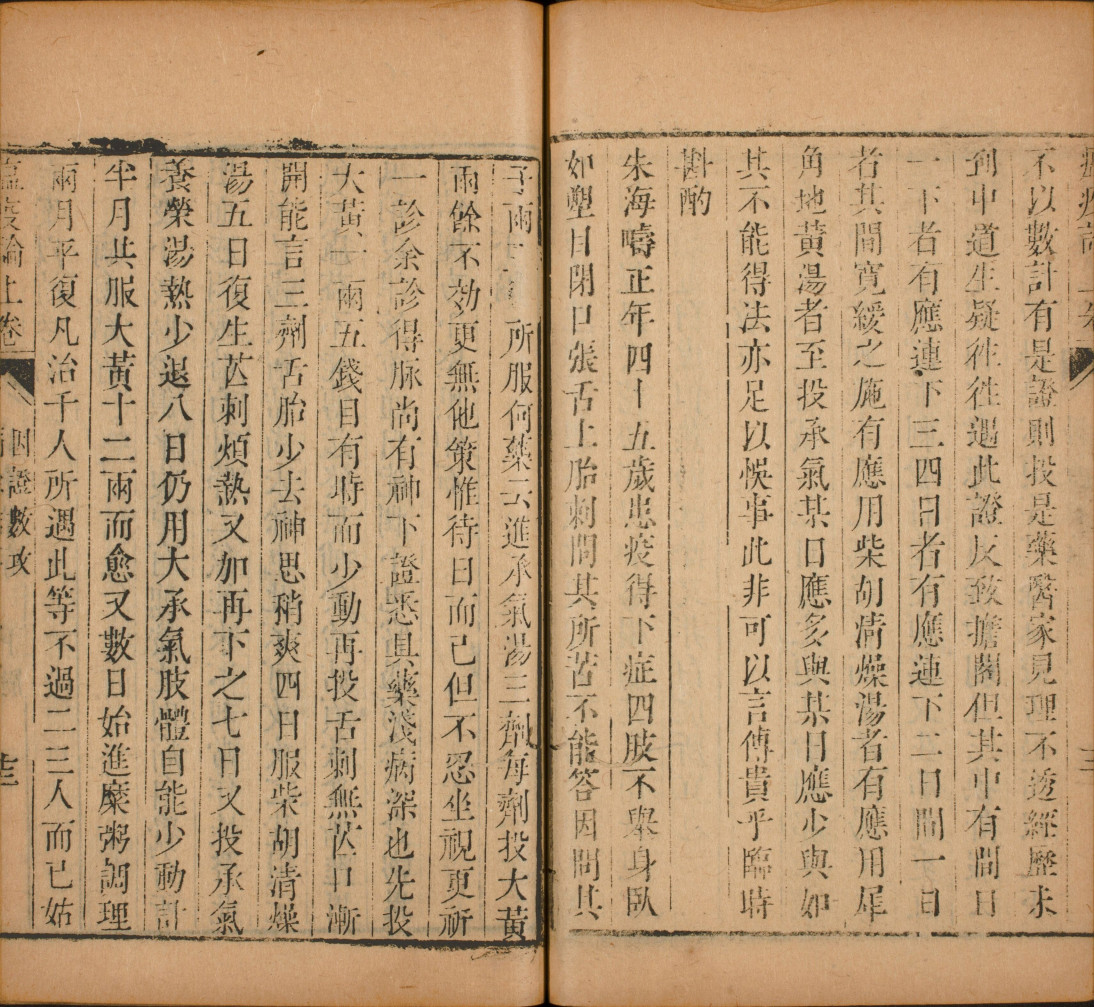 不以數計有是證則投是藥醫家見理不透經歷未
到中道生疑徃徃遇此證反致擔閣但其中有間日
一下者有應連下三四日者有應連下二日間一日
者其間寛緩之施有應用柴胡清燥湯者有應用犀
角地黃湯者至投承氣某日應多與某日應少與如
其不能得法亦足以悞事此非可以言傳貴乎臨時
斟酌
朱海疇正年四十五歲患疫得下症四肢不舉身臥
如塑目閉口張舌上胎刺問其所苦不能答因問其
子兩 所服何藥云進承氣湯三劑每劑投大黃
兩餘不効更無他策惟待日而已但不忍坐視更祈
一診余診得脉尚有神下證悉具藥淺病深也先投
大黃一兩五錢目有時而少動再投舌刺無芒口漸
開能言三劑舌胎少去神思稍爽四日服柴胡清燥
湯五日復生芒刺煩熱又加再下之七日又投承氣
養榮湯熱少退八日仍用大承氣肢體自能少動計
半月共服大黃十二兩而愈又數日始進糜粥調理
兩月平復凡治千人所遇此等不過二三人而已姑
溫疫論上卷
因證數攻